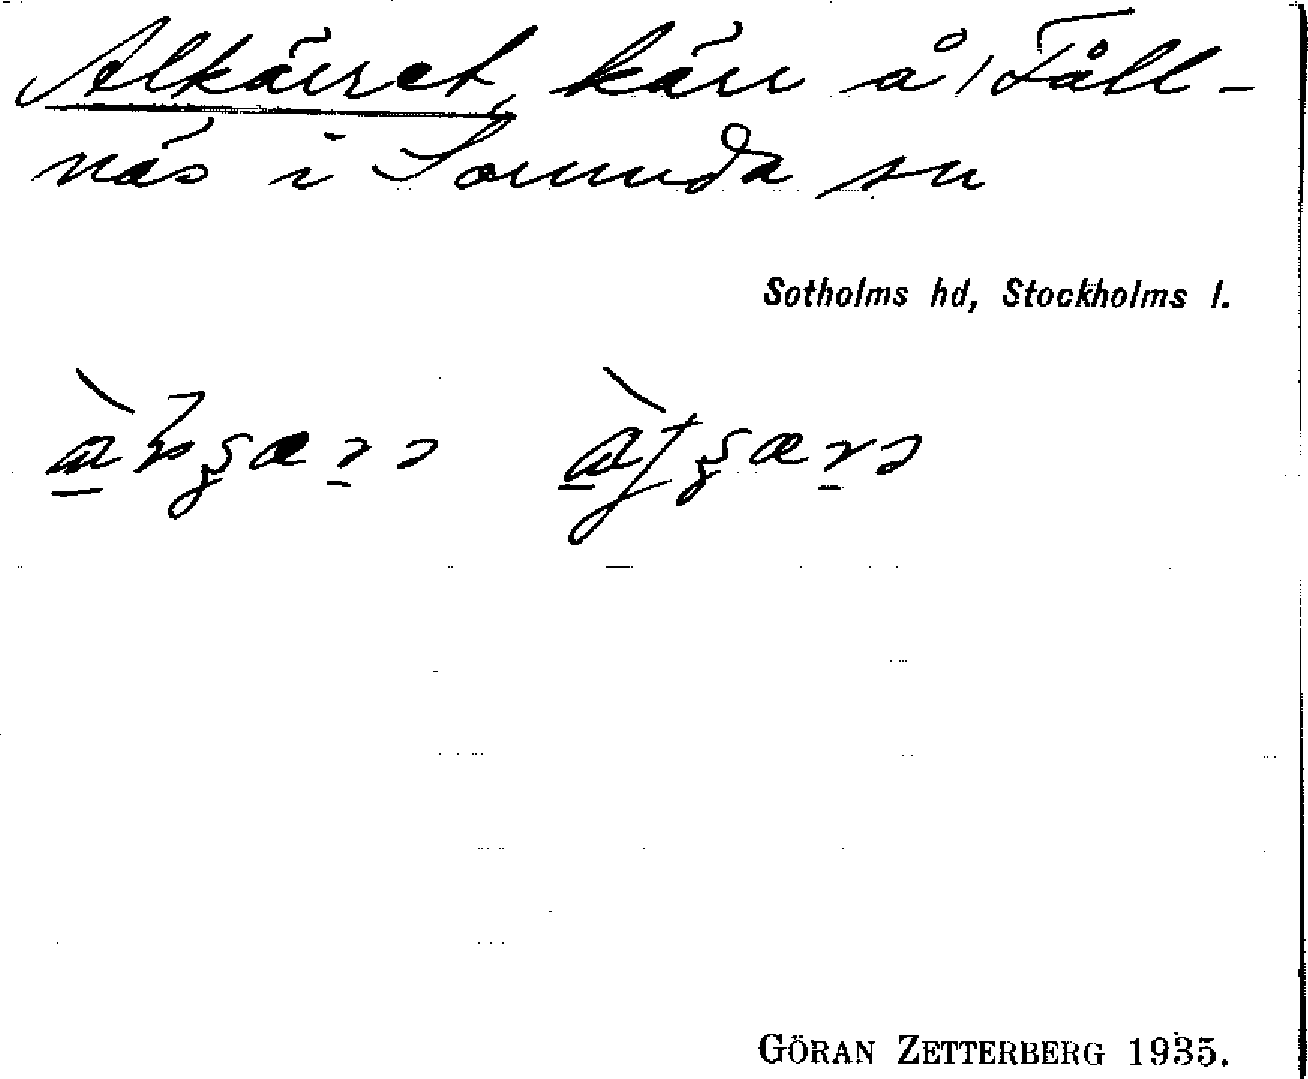 Alkärret, kärr å Fåll-
näs i Sorunda sn
Sotholms hd, Stockholms l.
GÖRAN ZETTERBERG 1935.